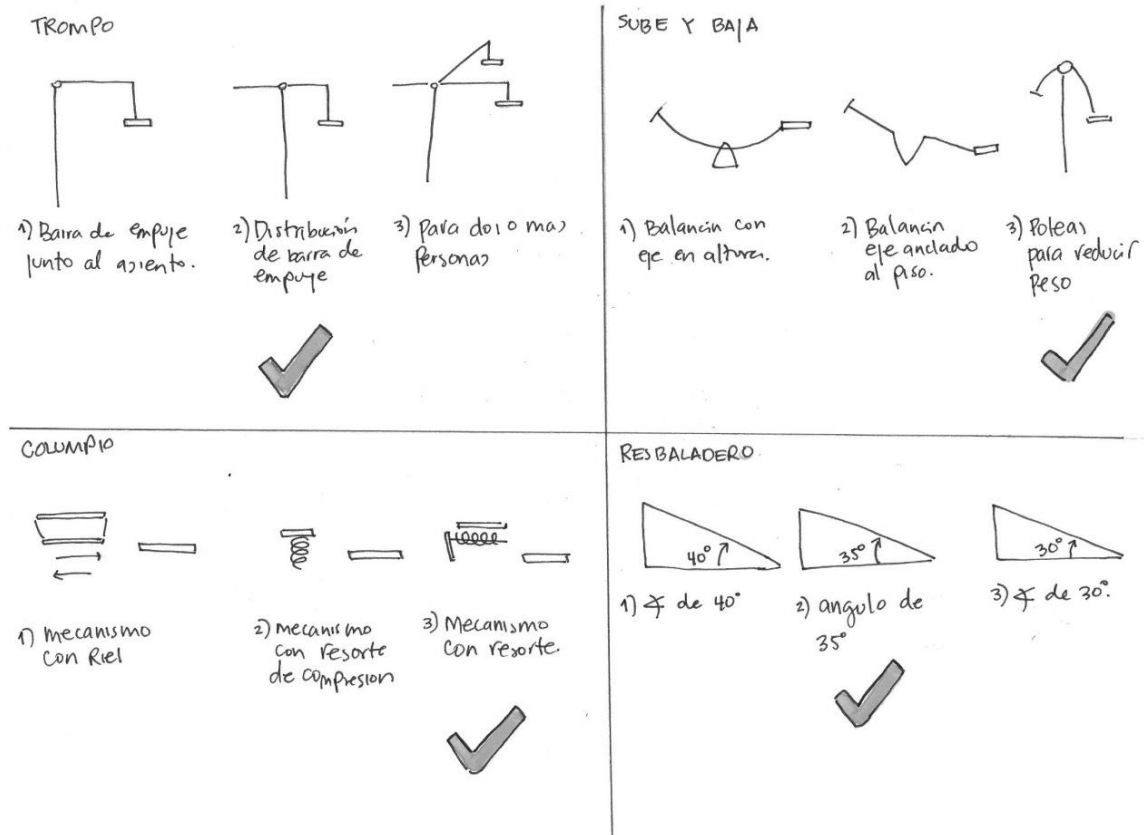 TROMPO
1) Barra de empuje
junto al asiento.
2) Distribución
de barra de
empuje
3) Para dos o mas
Personas
SUBE Y BAJA
1) Balancin con
eje en altura.
2) Balancin
eje anclado
al piso.
3) Poleas
para reducir
Peso
COLUMPIO
1) Mecanismo
con Riel
2) Mecanismo
con resorte
de compresion
3) Mecanismo
con resorte.
RESBALADERO
40°
35°
30°
1) ∡ de 40°
2) angulo de
35°
3) ∡ de 30°.